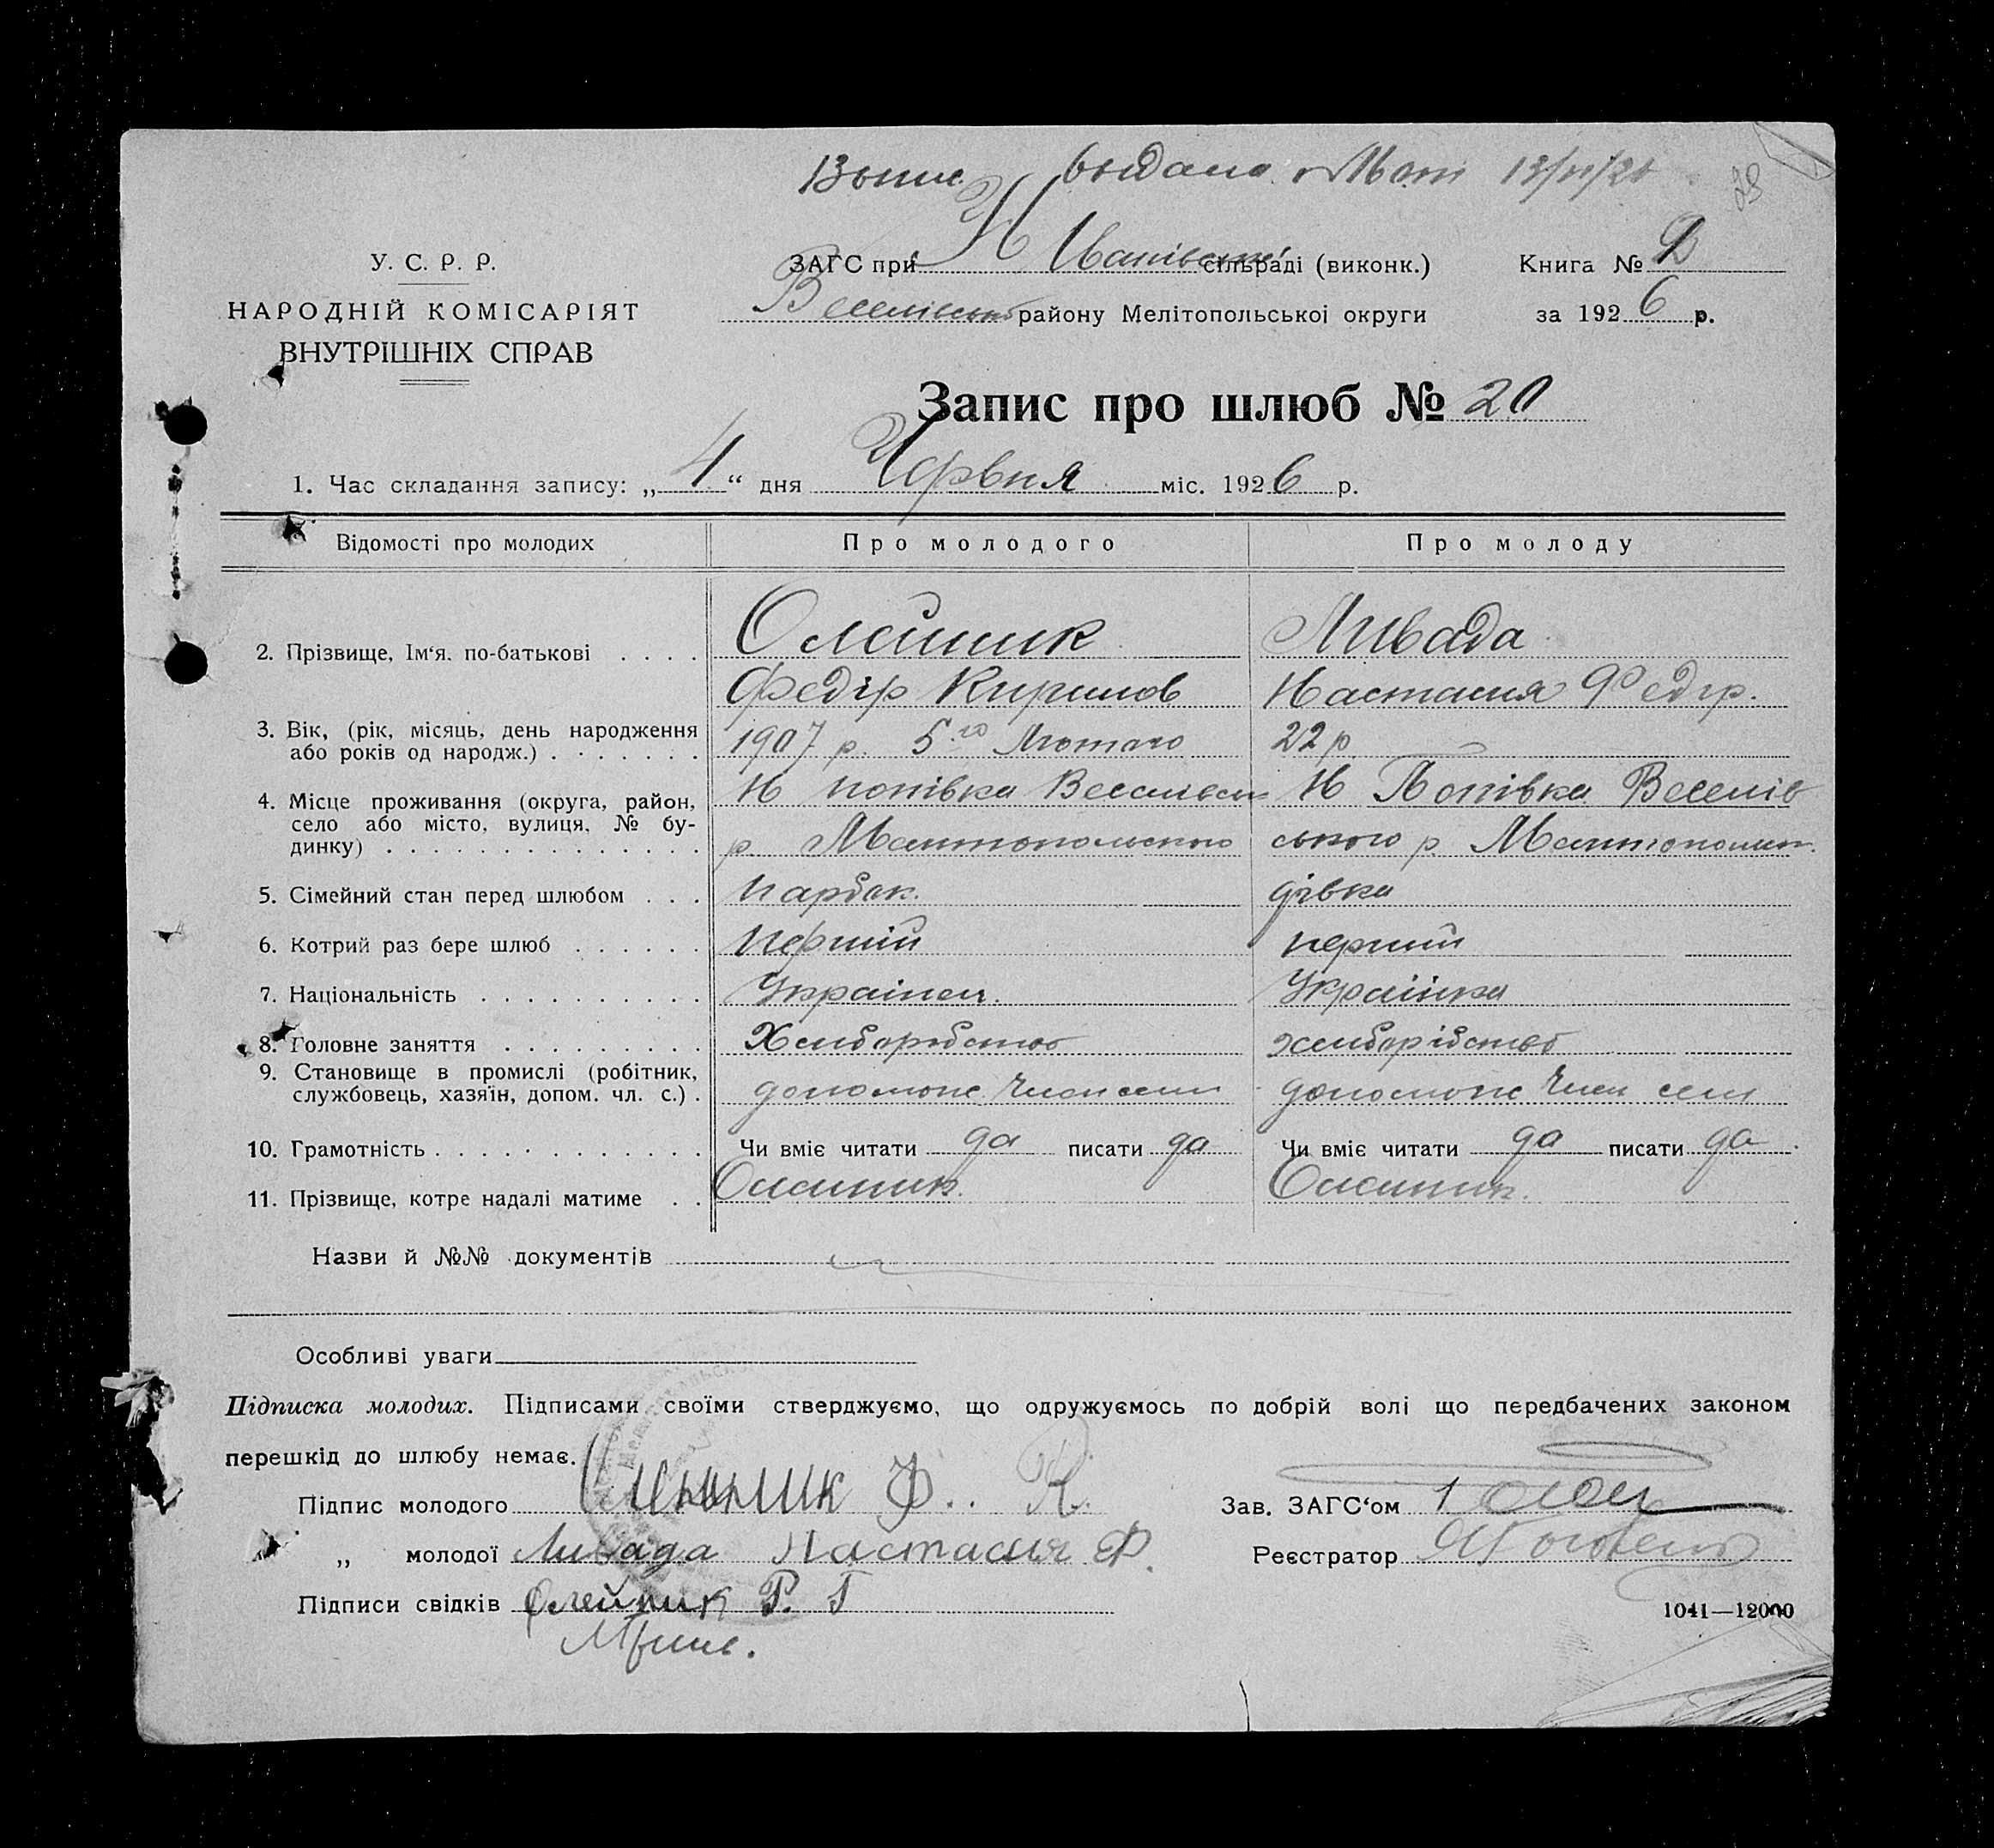 выдана 13/VI/26
У. С. Р. Р.
НАРОДНІЙ КОМІСАРІЯТ
ВНУТРІШНІХ СПРАВ
ЗАГС при Н Іванівські сільраді (виконк.)
Книга №
Веселівськ району Мелітопольської округи
за 1926 р.
Запис про шлюб № 20
1. Час складання запису: „4“ дня Червня міс. 1926 р.
Відомості про молодих Про молодого Про молоду
2. Прізвище, Ім'я, по-батькові . . . . Олейник Ливада
Федір Кирилов Настасия Федір.
3. Вік, (рік, місяць, день народження
або років од народж.) . . . . . . . 1907 р. 5го Лютого 22 р
4. Місце проживання (округа, район,
село або місто, вулиця, № бу-
динку) . . . . . . . . . . . . . .
Н Попівка Веселівськ Н Попівка Веселів
р. Мелитопольского ського р. Мелитопольск.
5. Сімейний стан перед шлюбом . . . Парубок. дівка
6. Котрий раз бере шлюб . . . . . . Перший перший
7. Національність . . . . . . . . . . Українец. Українка
8. Головне заняття . . . . . . . . . Хлиборобство хлиборібство
9. Становище в промислі (робітник,
службовець, хазяїн, допом. чл. с.) .
допомож. Член семи допомож Член семи
10. Грамотність . . . . . . . . . . . . Чи вміє читати да писати да Чи вміє читати да писати да
11. Прізвище, котре надалі матиме . . Олейник. Олейник.
Назви й №№ документів
Особливі уваги
Підписка молодих. Підписами своїми стверджуємо, що одружуємось по добрій волі що передбачених законом
перешкід до шлюбу немає.
Підпис молодого Ф. К.
Зав. ЗАГС'ом
„ молодої Ливада Настасия Ф.
Реєстратор
Підписи свідків Олейник Р. Г
1041—12000